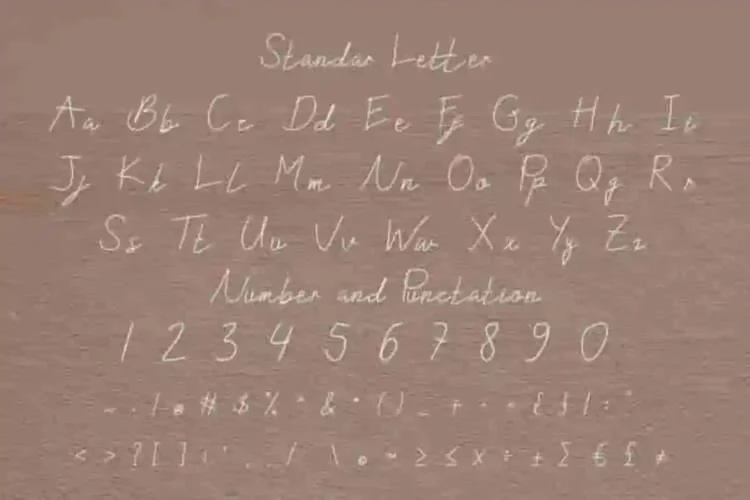 Standar Letter
Aa Bb Cc Dd Ee Ff Gg Hh Ii
Jj Kk Ll Mm Nn Oo Pp Qq Rr
Ss Tt Uu Vv Ww Xx Yy Zz
Number and Punctation
1 2 3 4 5 6 7 8 9 0
! @ # $ % ^ & * ( ) _ + { } | :
< > ? [ ] / \ ~ ≥ ≤ × ÷ ± Σ € £ ≠